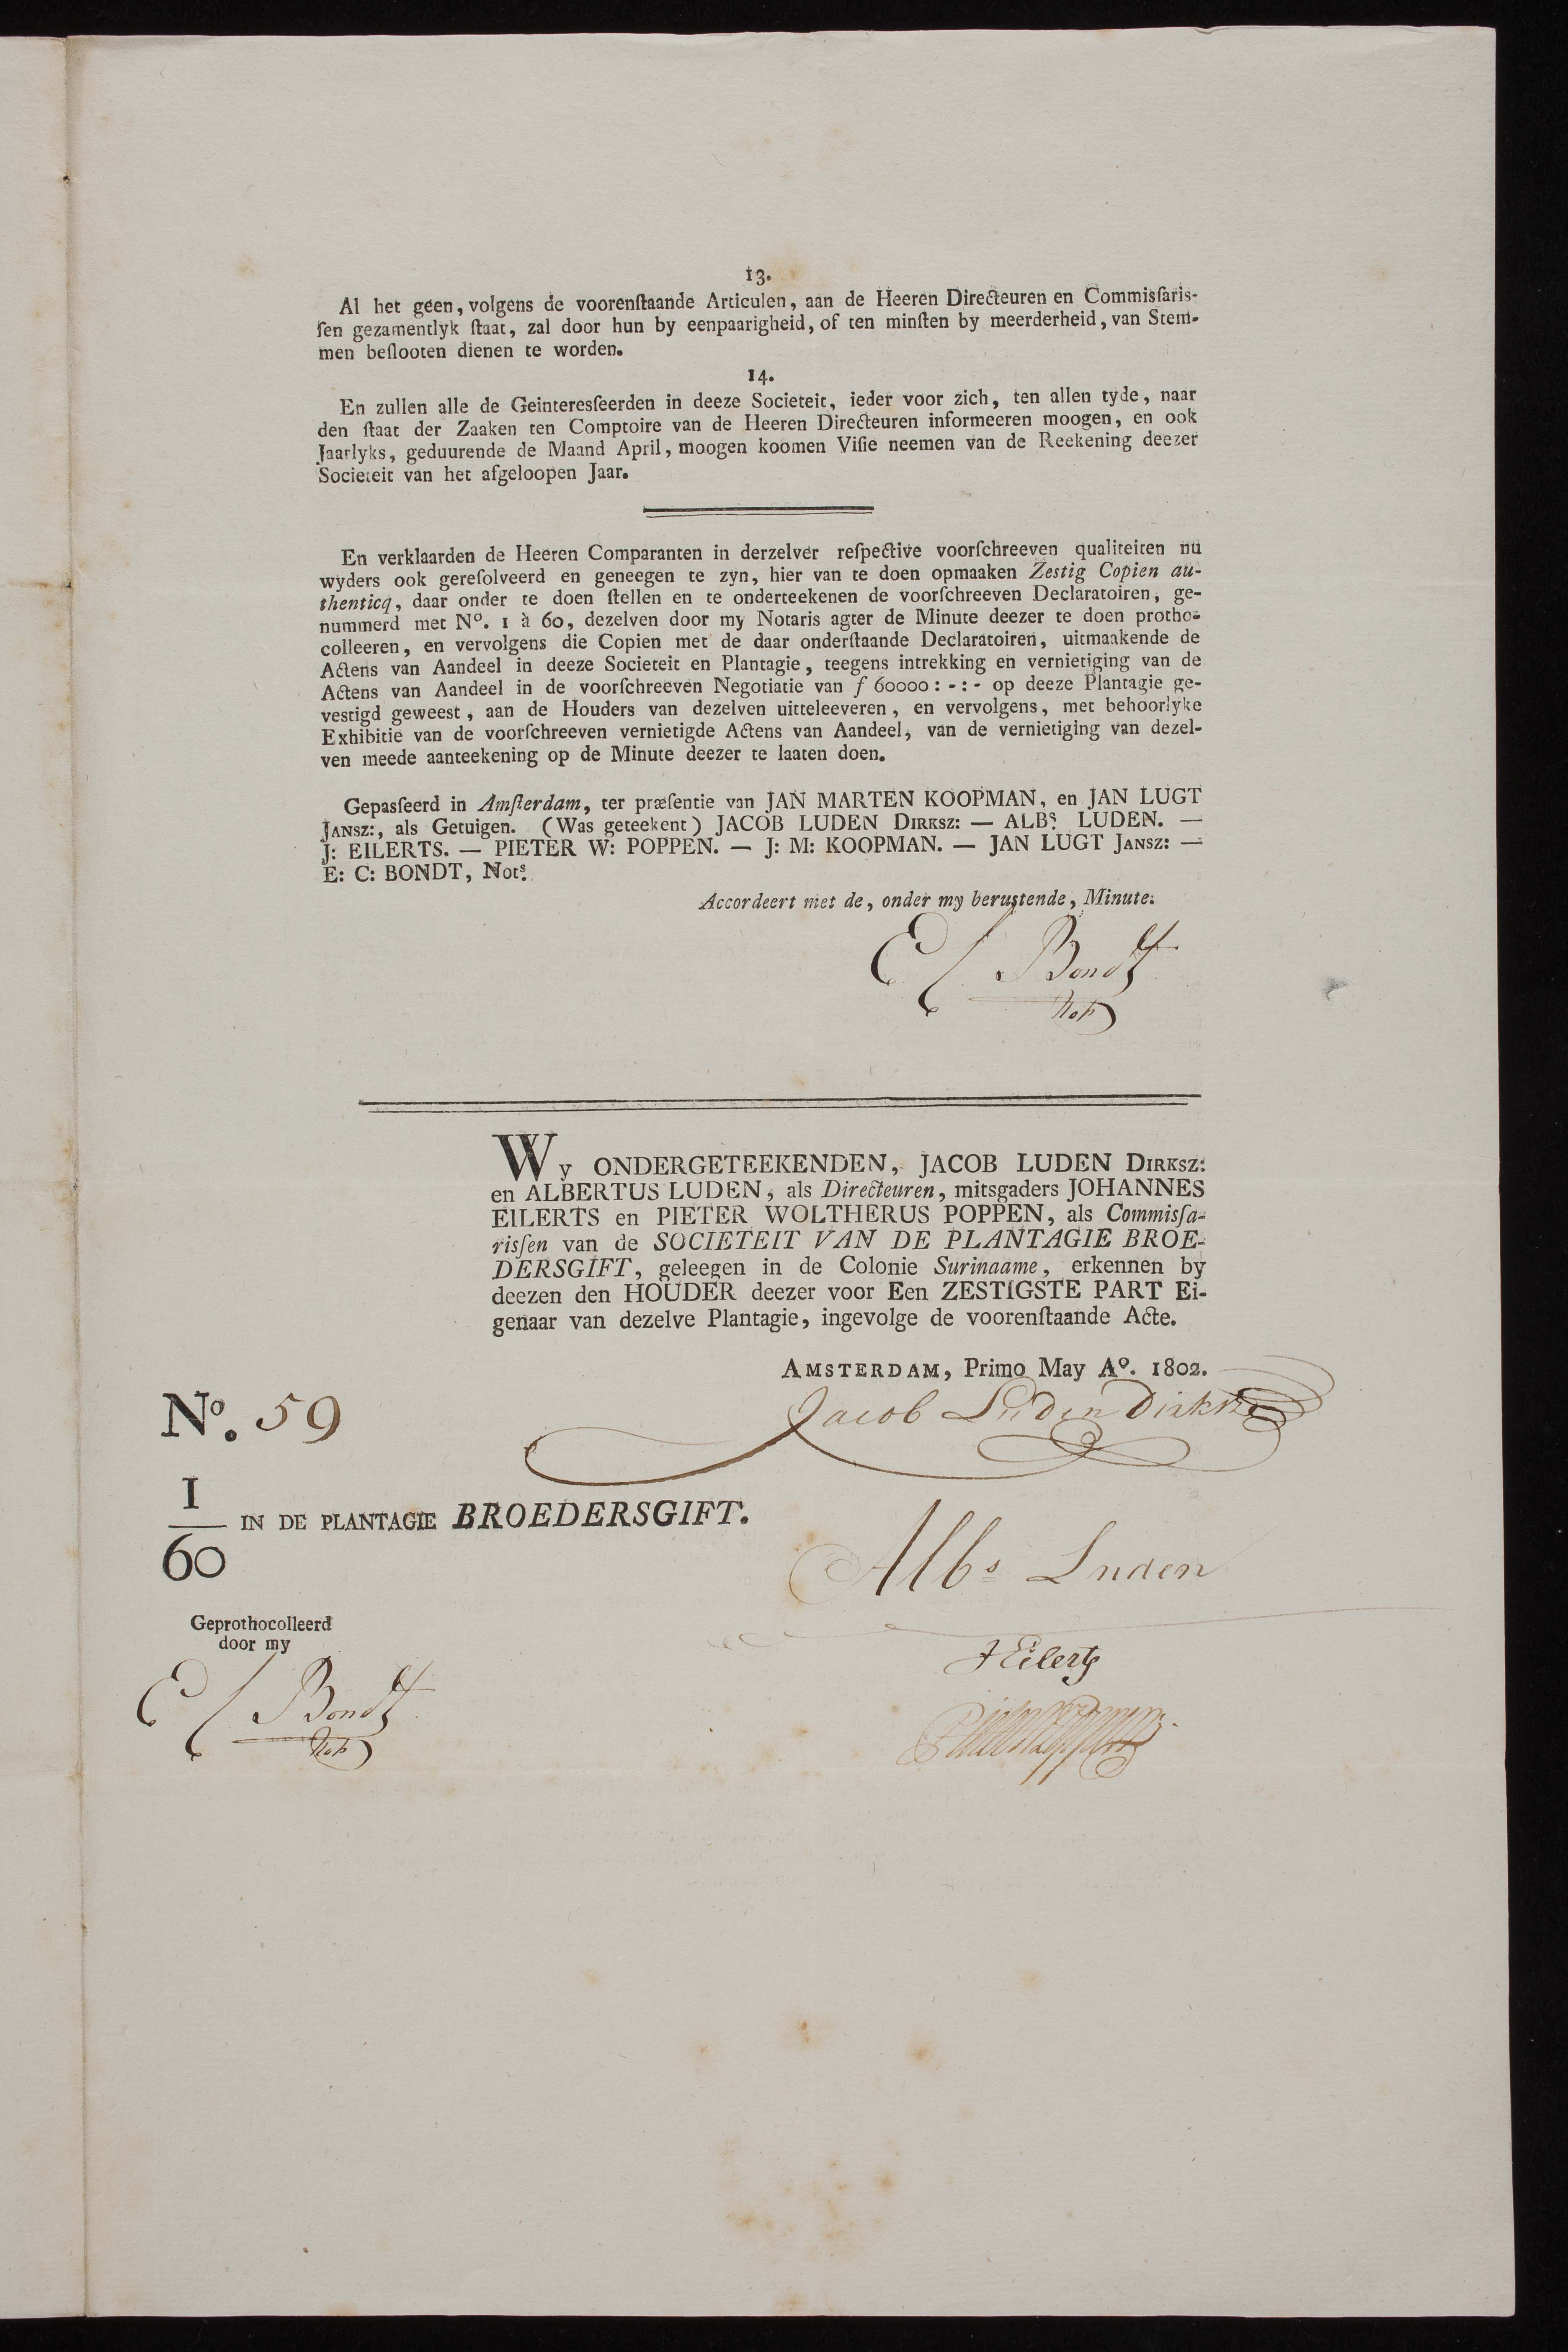 13.
Al het geen, volgens de voorenſtaande Articulen, aan de Heeren Directeuren en Commisſaris-
ſen gezamentlyk ſtaat, zal door hun by eenpaarigheid, of ten minſten by meerderheid, van Stem-
men beſlooten dienen te worden.
14.
En zullen alle de Geinteresſeerden in deeze Societeit, ieder voor zich, ten allen tyde, naar
den ſtaat der Zaaken ten Comptoire van de Heeren Directeuren informeeren moogen, en ook
Jaarlyks, geduurende de Maand April, moogen koomen Viſie neemen van de Reekening deezer
Societeit van het afgeloopen Jaar.
En verklaarden de Heeren Comparanten in derzelver reſpective voorſchreeven qualiteiten nu
wyders ook gereſolveerd en geneegen te zyn, hier van te doen opmaaken Zestig Copien au-
thenticq, daar onder te doen ſtellen en te onderteekenen de voorſchreeven Declaratoiren, ge-
nummerd met Nº. 1 à 60, dezelven door my Notaris agter de Minute deezer te doen protho-
colleeren, en vervolgens die Copien met de daar onderſtaande Declaratoiren, uitmaakende de
Actens van Aandeel in deeze Societeit en Plantagie, teegens intrekking en vernietiging van de
Actens van Aandeel in de voorſchreeven Negotiatie van ƒ 60000 : - : - op deeze Plantagie ge-
vestigd geweest, aan de Houders van dezelven uitteleeveren, en vervolgens, met behoorlyke
Exhibitie van de voorſchreeven vernietigde Actens van Aandeel, van de vernietiging van dezel-
ven meede aanteekening op de Minute deezer te laaten doen.
Gepasſeerd in Amſterdam, ter præſentie van JAN MARTEN KOOPMAN, en JAN LUGT
JANSZ:, als Getuigen. (Was geteekent) JACOB LUDEN DIRKSZ: — ALBs. LUDEN. —
J: EILERTS. — PIETER W: POPPEN. — J: M: KOOPMAN. — JAN LUGT JANSZ: —
E: C: BONDT, Nots.
Accordeert met de, onder my berustende, Minute.
E C Bondt
Nots
Wy ONDERGETEEKENDEN, JACOB LUDEN DIRKSZ:
en ALBERTUS LUDEN, als Directeuren, mitsgaders JOHANNES
EILERTS en PIETER WOLTHERUS POPPEN, als Commisſa-
risſen van de SOCIETEIT VAN DE PLANTAGIE BROE-
DERSGIFT, geleegen in de Colonie Surinaame, erkennen by
deezen den HOUDER deezer voor Een ZESTIGSTE PART Ei-
genaar van dezelve Plantagie, ingevolge de voorenſtaande Acte.
AMSTERDAM, Primo May Aº. 1802.
Nº. 59
Jacob Luden Dirksz
1
60
IN DE PLANTAGIE BROEDERSGIFT.
Albs Luden
Geprothocolleerd
door my
J Eilerts
E C Bondt
Nots